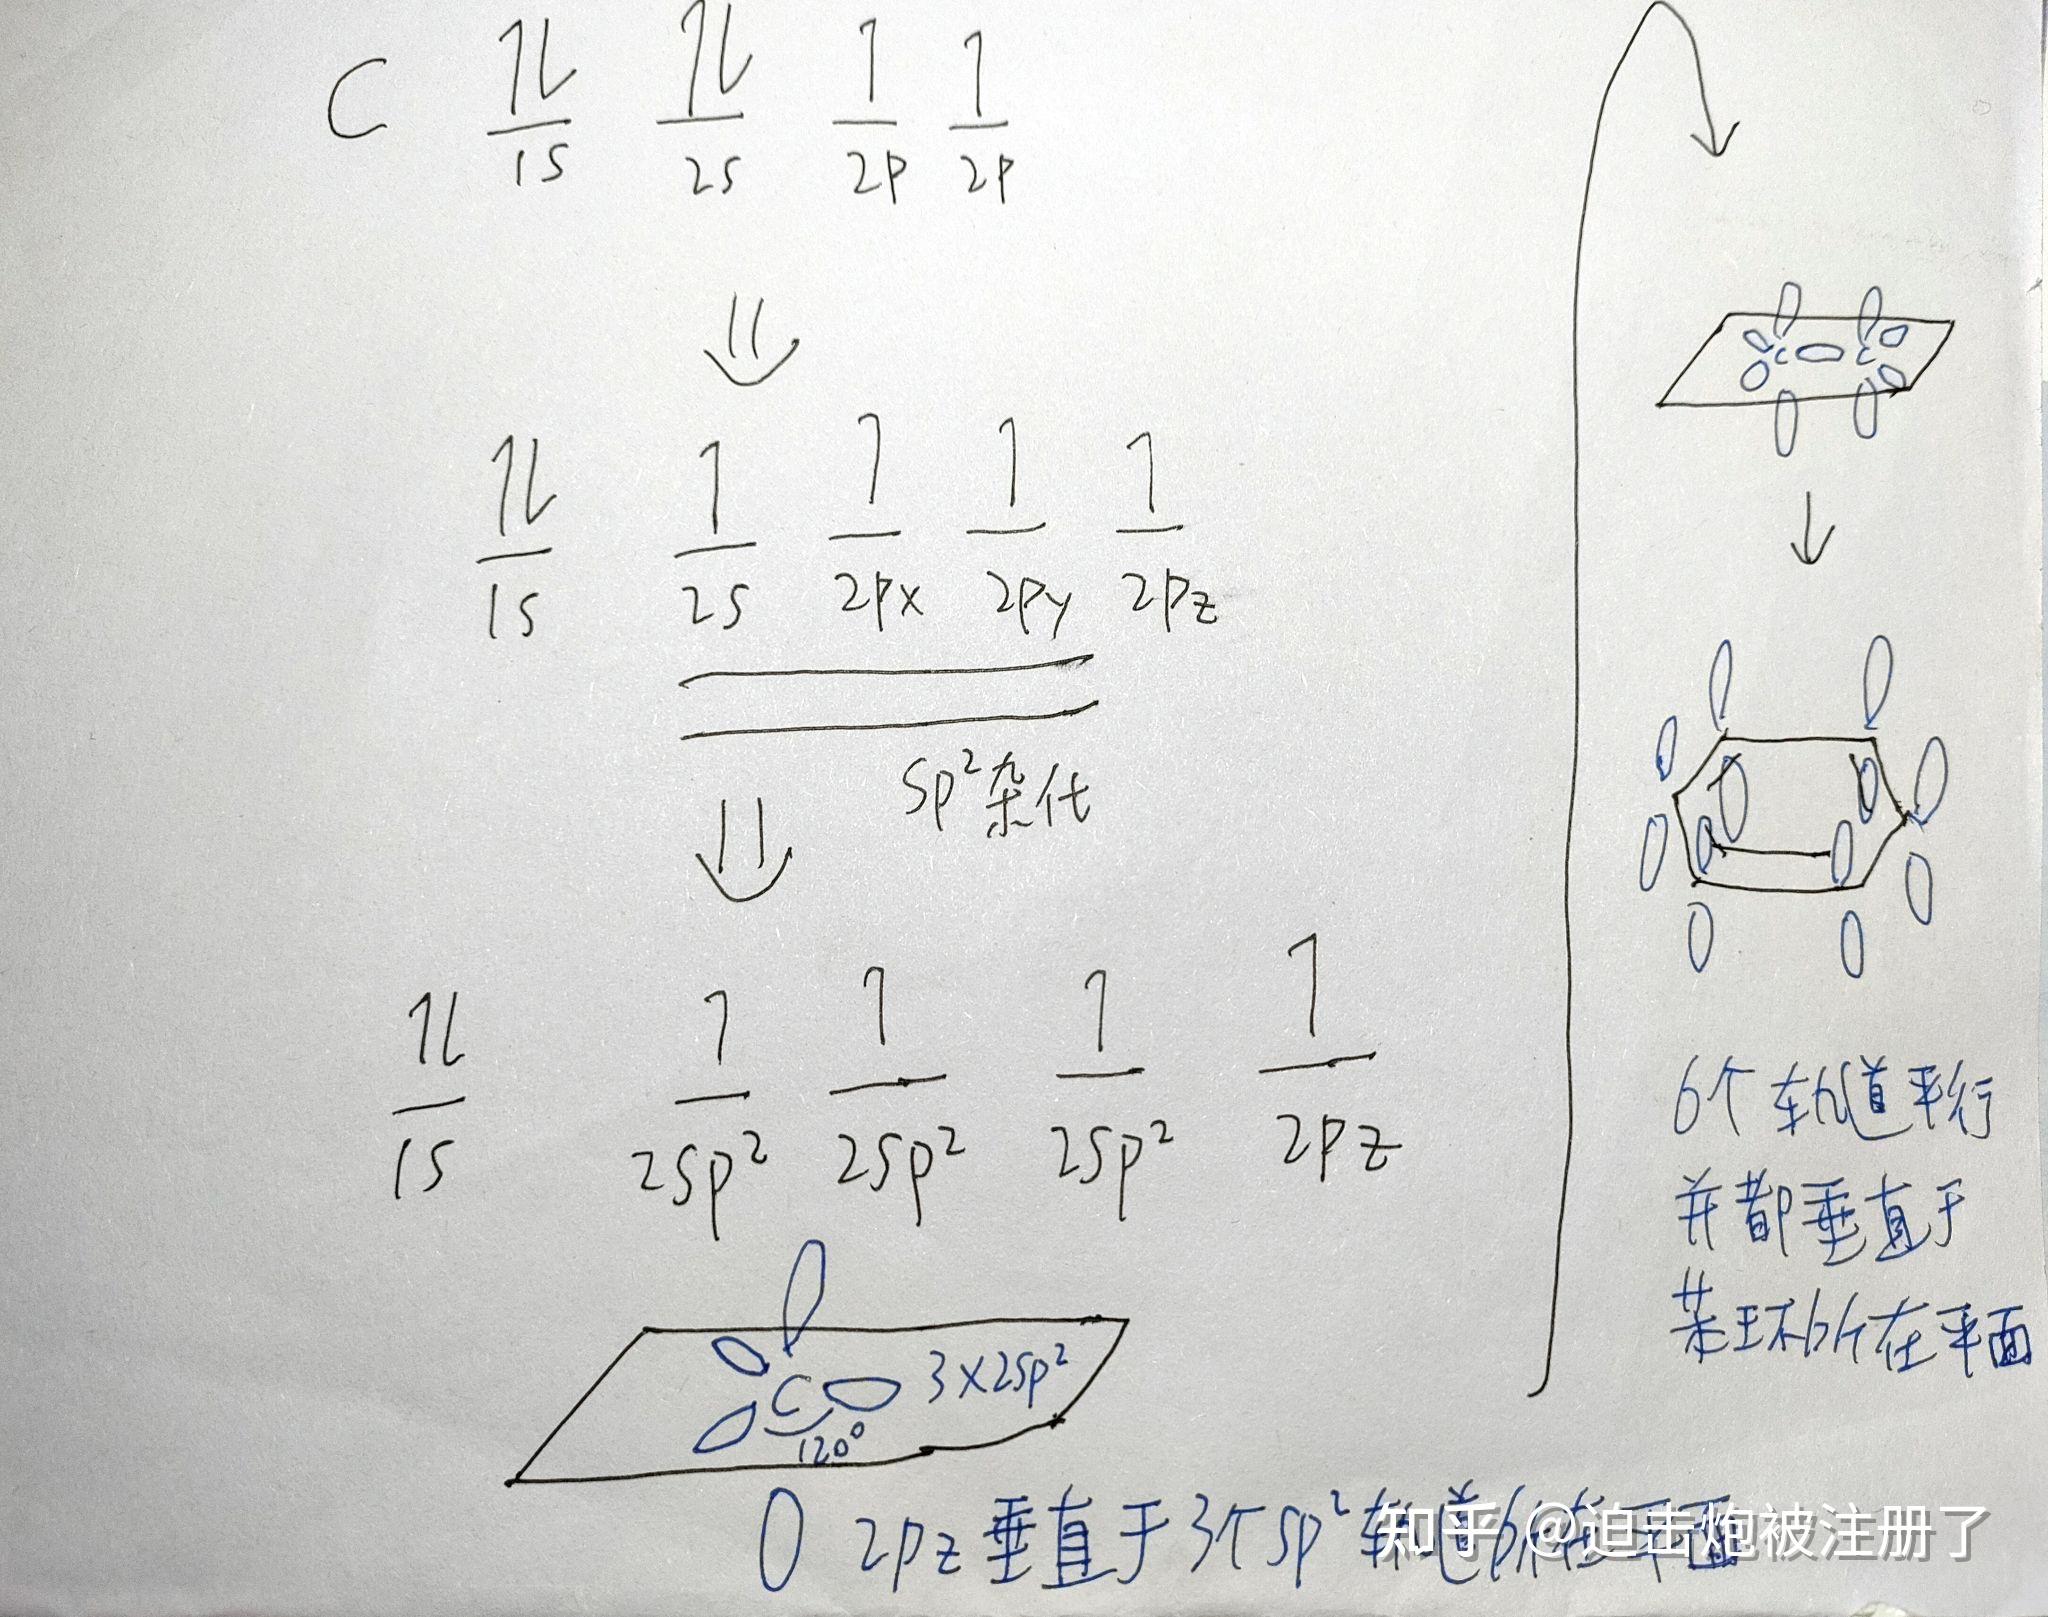 C 1s 2s 2p 2p
1s 2s 2px 2py 2pz
sp²杂化
1s 2sp² 2sp² 2sp² 2pz
C 3×2sp²
120°
2pz垂直于3个sp²轨道所在平面
C C
6个轨道平行
并都垂直于
苯环所在平面
知乎 @迫击炮被注册了